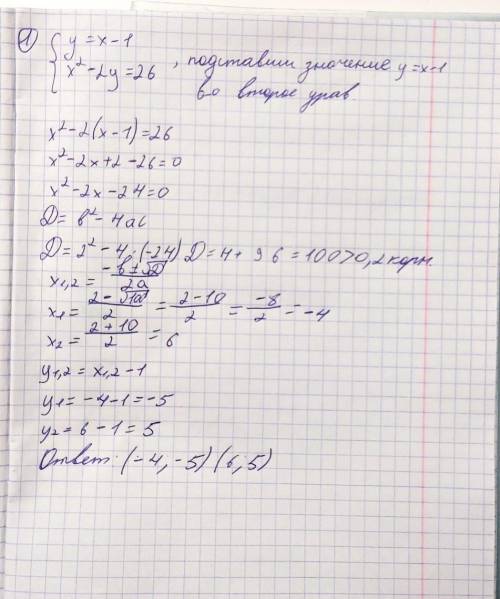 1) { y = x - 1
x² - 2y = 26 , подставим значение y = x - 1
во второе урав.
x² - 2(x - 1) = 26
x² - 2x + 2 - 26 = 0
x² - 2x - 24 = 0
D = b² - 4ac
D = 2² - 4 · (-24) D = 4 + 96 = 100 > 0, 2 корн.
x1,2 = (-b ± √D) / 2a
x1 = (2 - √100) / 2 = (2 - 10) / 2 = -8 / 2 = -4
x2 = (2 + 10) / 2 = 6
y1,2 = x1,2 - 1
y1 = -4 - 1 = -5
y2 = 6 - 1 = 5
Ответ: (-4, -5) (6, 5)